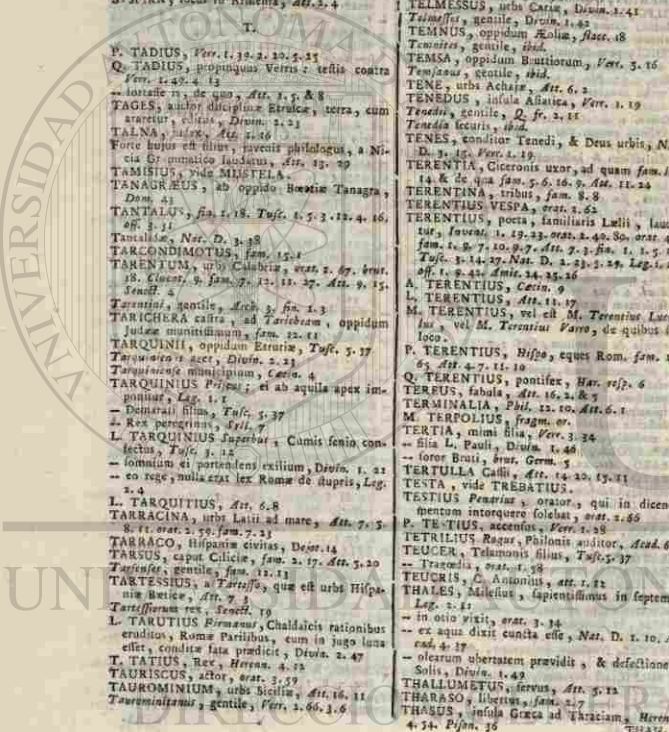 T.
P. TADIUS, Verr. 1. 39. 2. 20. 5. 25
Q. TADIUS, propinquus Verris: testis contra
Verr. 1. 49. 4. 13
-- fortasse is, de quo, Att. 1. 5. & 8
TAGES, auctor disciplinæ Etruscæ, terra, cum
araretur, editus, Divin. 2. 23
TALNA, judex, Att. 1. 16
Forte hujus est filius, juvenis philologus, a Ni-
cia Grammatico laudatus, Att. 13. 29
TAMISIUS, vide MUSTELA.
TANAGRÆUS, ab oppido Bœotiæ Tanagra,
Dom. 43
TANTALUS, fin. 1. 18. Tusc. 1. 5. 3. 12. 4. 16.
off. 3. 31
Tantalidæ, Nat. D. 3. 38
TARCONDIMOTUS, fam. 15. 1
TARENTUM, urbs Calabriæ, orat. 2. 67. brut.
18. Cluent. 9. fam. 7. 12. 11. 27. Att. 9. 15.
Senect. 4
Tarentini, gentile, Arch. 3. fin. 1. 3
TARICHERA castra, ad Taricheam, oppidum
Judææ munitissimum, fam. 12. 11
TARQUINII, oppidum Etruriæ, Tusc. 5. 37
Tarquiniensis ager, Divin. 2. 23
Tarquiniense municipium, Cæcin. 4
TARQUINIUS Priscus: ei ab aquila apex im-
ponitur, Leg. 1. 1
-- Demarati filius, Tusc. 5. 37
-- Rex peregrinus, Syll. 7
L. TARQUINIUS Superbus, Cumis senio con-
fectus, Tusc. 3. 12
-- somnium ei portendens exilium, Divin. 1. 21
-- eo rege, nulla erat lex Romæ de stupris, Leg.
2. 4
L. TARQUITIUS, Att. 6. 8
TARRACINA, urbs Latii ad mare, Att. 7. 5.
8. 11. orat. 2. 59. fam. 7. 23
TARRACO, Hispaniæ civitas, Dejot. 14
TARSUS, caput Ciliciæ, fam. 2. 17. Att. 5. 20
Tarsenses, gentile, fam. 12. 13
TARTESSIUS, a Tartesso, quæ est urbs Hispa-
niæ Bæticæ, Att. 7. 3
Tartessiorum rex, Senect. 19
L. TARUTIUS Firmanus, Chaldaicis rationibus
eruditus, Romæ Parilibus, cum in jugo luna
esset, conditæ fata prædicit, Divin. 2. 47
T. TATIUS, Rex, Herenn. 4. 12
TAURISCUS, actor, orat. 3. 59
TAUROMINIUM, urbs Siciliæ, Att. 16. 11
Taurominitanus, gentile, Verr. 2. 66. 3. 6
TELMESSUS, urbs Cariæ, Divin. 1. 41
Telmesses, gentile, Divin. 1. 42
TEMNUS, oppidum Æoliæ, flacc. 18
Temnites, gentile, ibid.
TEMSA, oppidum Bruttiorum, Verr. 5. 16
Temsanus, gentile, ibid.
TENE, urbs Achajæ, Att. 6. 2
TENEDUS, insula Asiatica, Verr. 1. 19
Tenedii, gentile, Q. fr. 2. 11
Tenedia securis, ibid.
TENES, conditor Tenedi, & Deus urbis,
D. 3. 15. Verr. 1. 19
TERENTIA, Ciceronis uxor, ad quam fam.
14 & de qua fam. 5. 6. 16. 9. Att. 11. 24
TERENTINA, tribus, fam. 8. 8
TERENTIUS VESPA, orat. 2. 62
TERENTIUS, poeta, familiaris Lælii,
tur, Invent. 1. 19. 23. orat. 2. 40. 80. orat.
fam. 1. 9. 7. 10. 9. 7. Att. 7. 3. fin. 1.
Tusc. 3. 14. 27. Nat. D. 2. 23. 5. 29. Leg. 1.
off. 1. 9. 42. Amic. 24. 25. 26
A. TERENTIUS, Cæcin. 9
L. TERENTIUS, Att. 11. 17
M. TERENTIUS, vel est M. Terentius
vel M. Terentius Varro, de quibus
loco.
P. TERENTIUS, Hispo, eques Rom. fam.
65 Att. 4. 7. 11. 10
Q. TERENTIUS, pontifex, Har. resp. 6
TEREUS, fabula, Att. 16. 2. & 5
TERMINALIA, Phil. 12. 10. Att. 6. 1
M. TERPOLIUS, fragm. or.
TERTIA, mimi filia, Verr. 3. 34
-- filia L. Pauli, Divin. 1. 46
-- soror Bruti, brut. Germ. 5
TERTULLA Cassii, Att. 14. 20. 15. 11
TESTA, vide TREBATIUS.
TESTIUS Penarius, orator, qui in dicen
mentum intorquere solebat, orat. 2. 66
P. TETTIUS, accensus, Verr. 1. 28
TETRILIUS Rogus, Philonis auditor, Acad.
TEUCER, Telamonis filius, Tusc. 5. 37
-- Tragœdia, orat. 1. 58
TEUCRIS, C. Antonius, att. 1. 12
THALES, Milesius, sapientissimus in septem
Leg. 2. 11
-- in otio vixit, orat. 3. 34
-- ex aqua dixit cuncta esse, Nat. D. 1. 10.
cad. 4. 37
-- olearum ubertatem prævidit, & defectione
Solis, Divin. 1. 49
THALLUMETUS, servus, Att. 5. 12
THARASO, libertus, fam. 2. 7
THASUS, insula Græca ad Thraciam, Heren
4. 54. Pison. 36